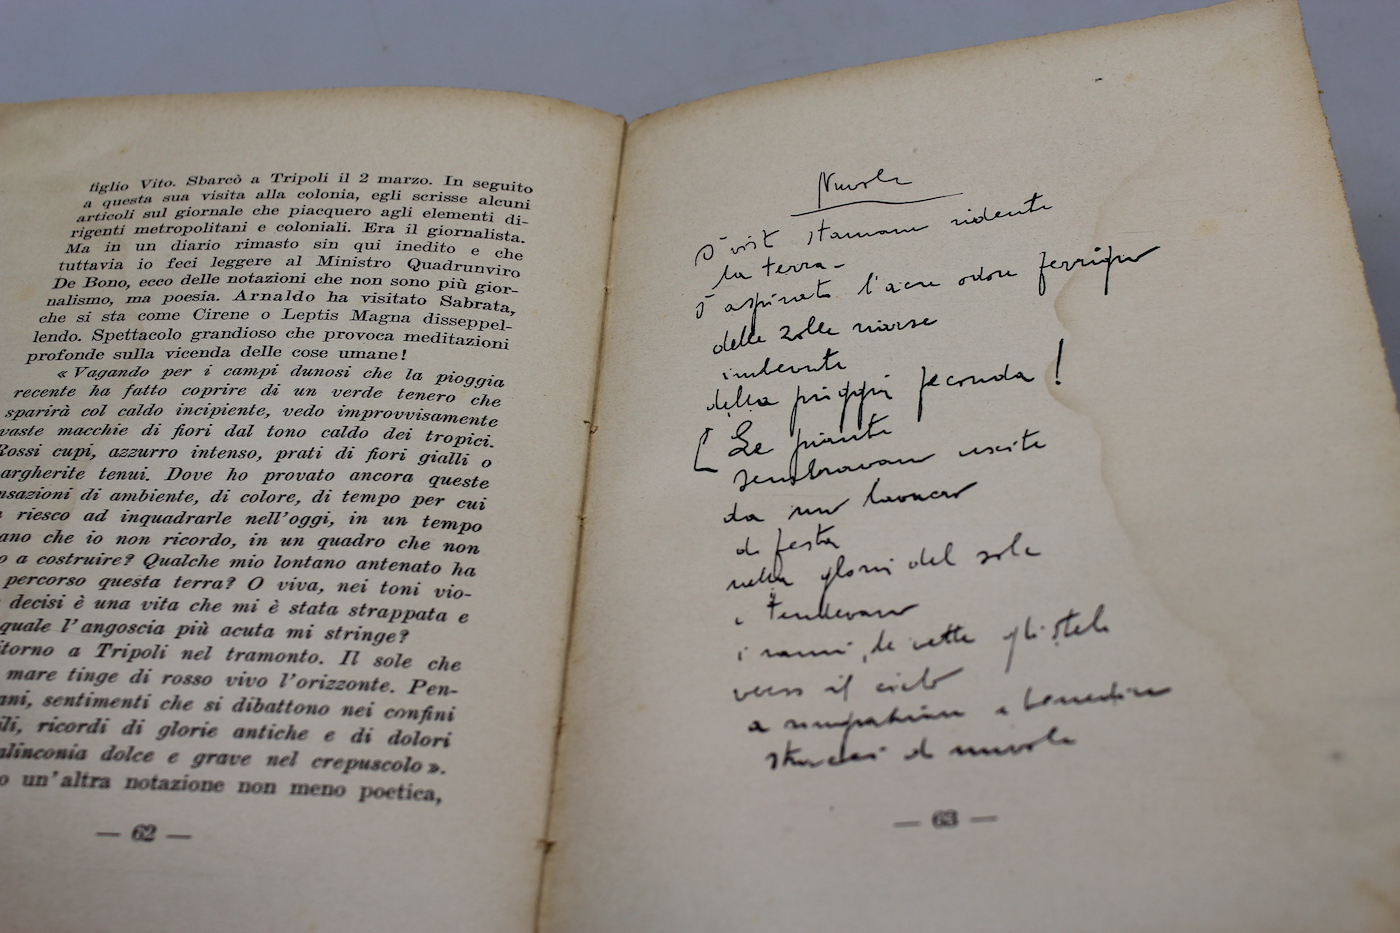 figlio Vito. Sbarcò a Tripoli il 2 marzo. In seguito
a questa sua visita alla colonia, egli scrisse alcuni
articoli sul giornale che piacquero agli elementi di-
rigenti metropolitani e coloniali. Era il giornalista.
Ma in un diario rimasto sin qui inedito e che
tuttavia io feci leggere al Ministro Quadrunviro
De Bono, ecco delle notazioni che non sono più gior-
nalismo, ma poesia. Arnaldo ha visitato Sabrata,
che si sta come Cirene o Leptis Magna disseppel-
lendo. Spettacolo grandioso che provoca meditazioni
profonde sulla vicenda delle cose umane!
« Vagando per i campi dunosi che la pioggia
recente ha fatto coprire di un verde tenero che
sparirà col caldo incipiente, vedo improvvisamente
vaste macchie di fiori dal tono caldo dei tropici.
Rossi cupi, azzurro intenso, prati di fiori gialli o
argherite tenui. Dove ho provato ancora queste
nsazioni di ambiente, di colore, di tempo per cui
riesco ad inquadrarle nell'oggi, in un tempo
ano che io non ricordo, in un quadro che non
o a costruire? Qualche mio lontano antenato ha
percorso questa terra? O viva, nei toni vio-
decisi è una vita che mi è stata strappata e
quale l'angoscia più acuta mi stringe?
itorno a Tripoli nel tramonto. Il sole che
mare tinge di rosso vivo l'orizzonte. Pen-
ani, sentimenti che si dibattono nei confini
ili, ricordi di glorie antiche e di dolori
alinconia dolce e grave nel crepuscolo ».
o un'altra notazione non meno poetica,
— 62 —
Nuvole
stamane ridente
la terra -
l'acre odore ferrigno
delle zolle riarse
imbevute
della pioggia feconda!
[ Le piante
sembravano uscite
da un lavacro
di festa
nella gloria del sole
e tendevano
i rami, le vette gli steli
verso il cielo
a e benedire
di nuvole
— 63 —